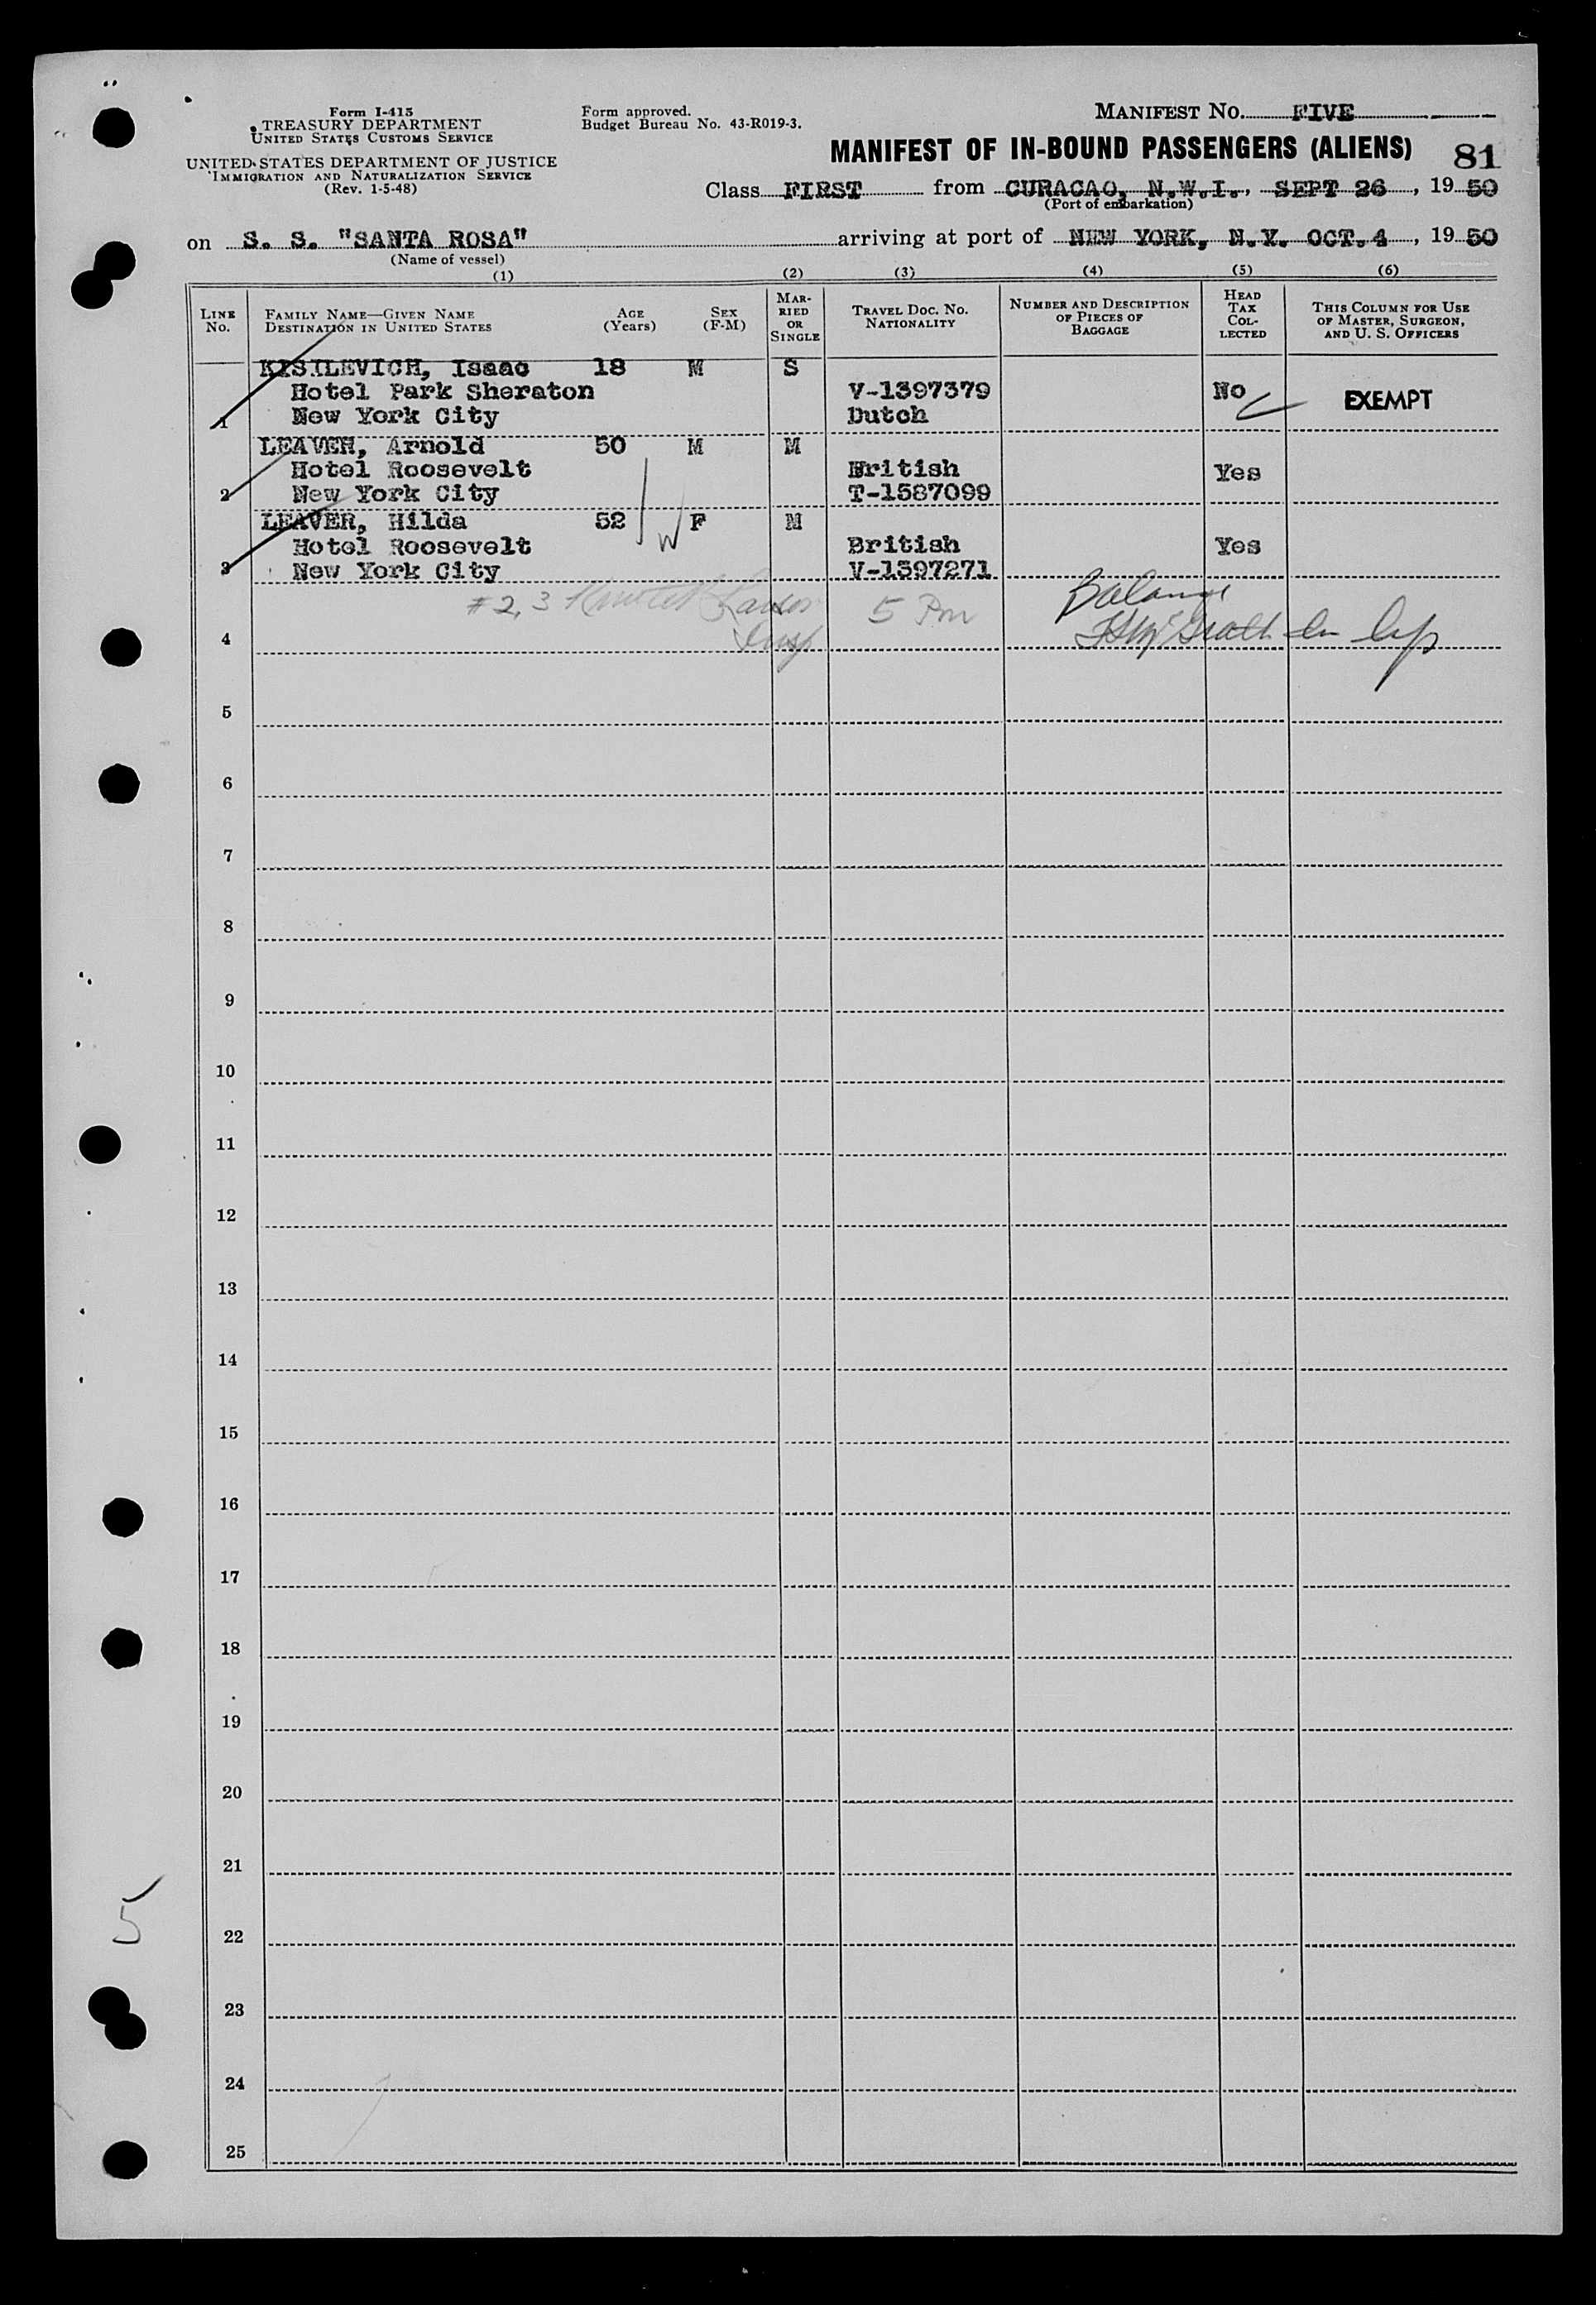 Form I-415
TREASURY DEPARTMENT
UNITED STATES CUSTOMS SERVICE
UNITED STATES DEPARTMENT OF JUSTICE
IMMIGRATION AND NATURALIZATION SERVICE
(Rev. 1-5-48)
Form approved.
Budget Bureau No. 43-R019-3.
MANIFEST No. FIVE
MANIFEST OF IN-BOUND PASSENGERS (ALIENS) 81
Class FIRST from CURACAO, N.W.I., SEPT 26, 19 50
(Port of embarkation)
on S. S. "SANTA ROSA" arriving at port of NEW YORK, N.Y. OCT. 4, 19 50
(Name of vessel)
(1) (2) (3) (4) (5) (6)
LINE No.
FAMILY NAME—GIVEN NAME
DESTINATION IN UNITED STATES
AGE (Years)
SEX (F-M)
MARRIED OR SINGLE
TRAVEL DOC. NO.
NATIONALITY
NUMBER AND DESCRIPTION OF PIECES OF BAGGAGE
HEAD TAX COLLECTED
THIS COLUMN FOR USE OF MASTER, SURGEON, AND U. S. OFFICERS
KISILEVICH, Isaac 18 M S
Hotel Park Sheraton V-1397379 No EXEMPT
1 New York City Dutch
LEAVER, Arnold 50 M M
Hotel Roosevelt British Yes
2 New York City T-1587099
LEAVER, Hilda 52 W F M
Hotel Roosevelt British Yes
3 New York City V-1597271
#2, 3 5 Pm Balance
4 Insp
5
6
7
8
9
10
11
12
13
14
15
16
17
18
19
20
21
5
22
23
24
25